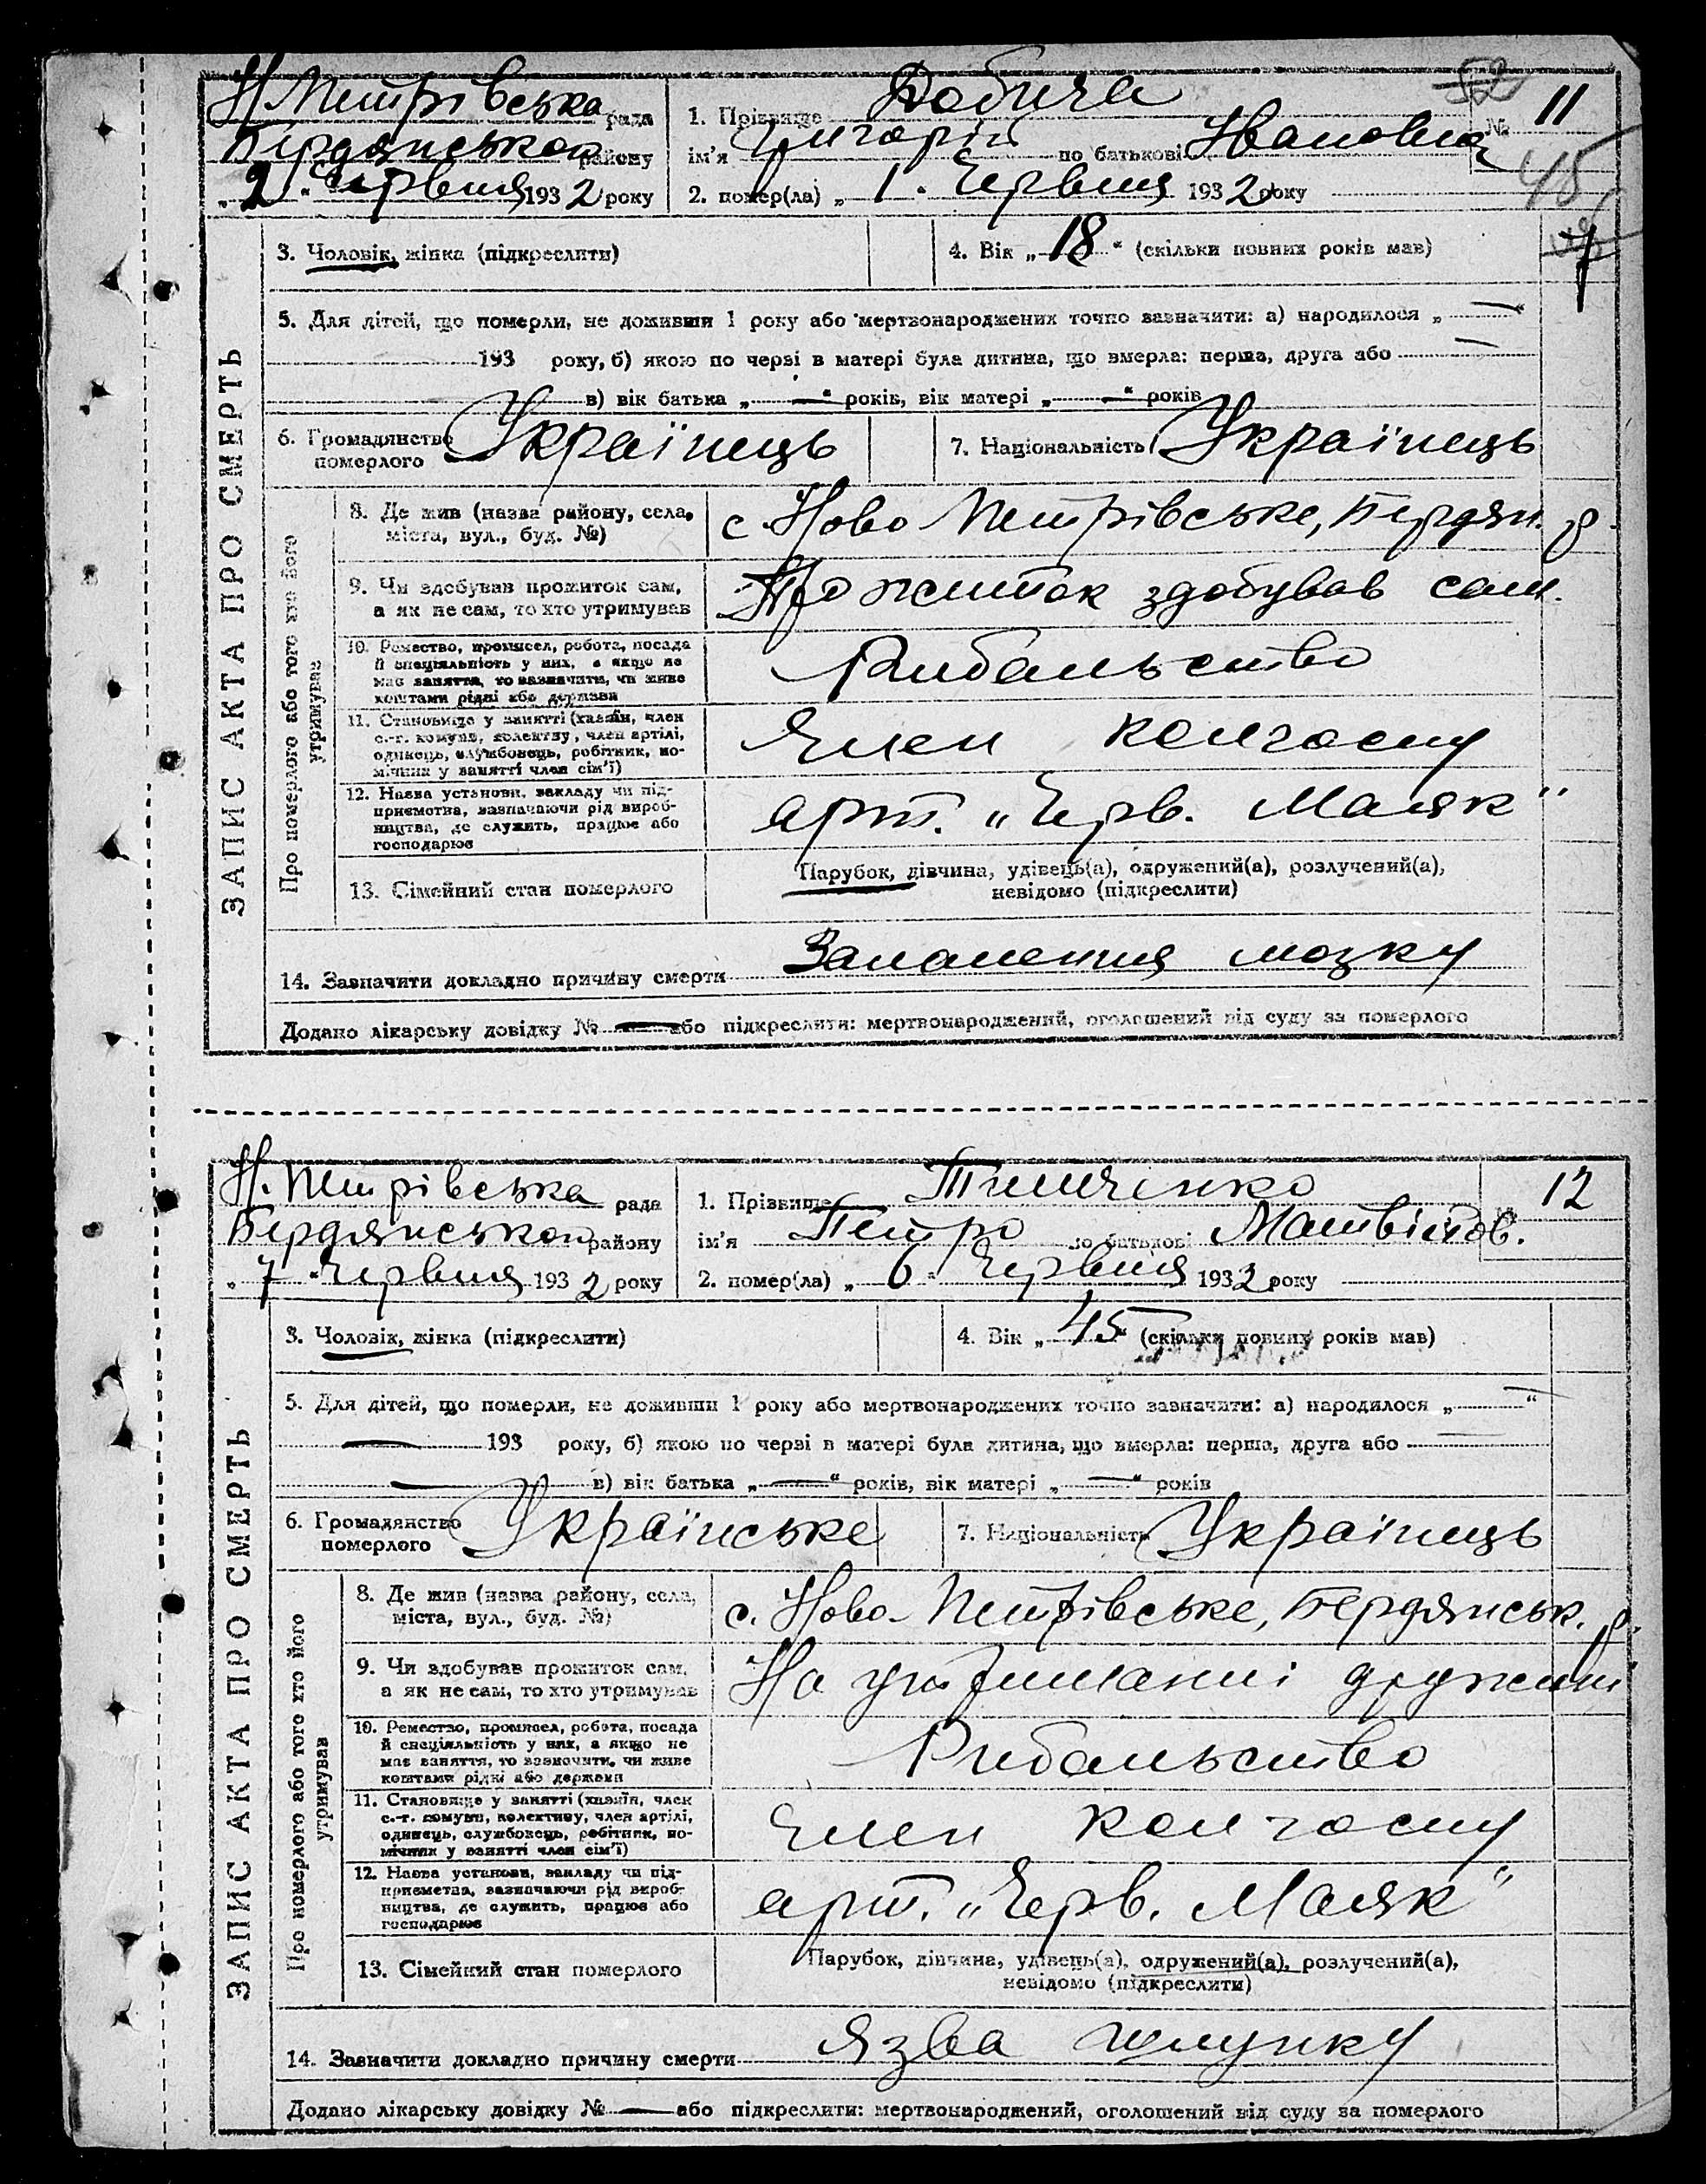 ЗАПИС АКТА ПРО СМЕРТЬ
Н Петрівська рада
Бердянського району
„ 2 " Червня 1932 року
52
№ 11
45
7
1. Прізвище Добича
ім'я Григорій по батькові Іванович
2. помер(ла) „ 1 " Червня 1932 року
3. Чоловік, жінка (підкреслити)
4. Вік „ 18 " (скільки повних років мав)
5. Для дітей, що померли, не доживши 1 року або мертвонароджених точно зазначити: а) народилося „ — "
193 року, б) якою по черзі в матері була дитина, що вмерла: перша, друга або —
в) вік батька „ — " років, вік матері „ — " років
6. Громадянство померлого Українець
7. Національність Українець
Про померлого або того хто його утримував
8. Де жив (назва району, села, міста, вул., буд. №)
с. Ново Петрівське, Бердян. р.
9. Чи здобував прожиток сам, а як не сам, то хто утримував
Прожиток здобував сам.
10. Ремество, промисел, робота, посада й спеціяльність у них, а якщо не має заняття, то зазначити, чи живе коштами рідні або держави
Рибальство
11. Становище у занятті (хазяїн, член с.-г. комуни, колективу, член артілі, одинець, службовець, робітник, помічник у занятті член сім'ї)
Член колгоспу
12. Назва установи, закладу чи підприємства, зазначаючи рід виробництва, де служить, працює або господарює
арт. „Черв. Маяк"
13. Сімейний стан померлого
Парубок, дівчина, удівець(а), одружений(а), розлучений(а),
невідомо (підкреслити)
14. Зазначити докладно причину смерти Запалення мозку
Додано лікарську довідку № — або підкреслити: мертвонароджений, оголошений від суду за померлого
ЗАПИС АКТА ПРО СМЕРТЬ
Н. Петрівська рада
Бердянського району
„ 7 " Червня 1932 року
12
1. Прізвище Тимченко
ім'я Петро по батькові Матвійов.
2. помер(ла) „ 6 " Червня 1932 року
3. Чоловік, жінка (підкреслити)
4. Вік „ 45 " (скільки повних років мав)
5. Для дітей, що померли, не доживши 1 року або мертвонароджених точно зазначити: а) народилося „ — "
— 193 року, б) якою по черзі в матері була дитина, що вмерла: перша, друга або —
— в) вік батька „ — " років, вік матері „ — " років
6. Громадянство померлого Українське
7. Національність Українець
Про померлого або того хто його утримував
8. Де жив (назва району, села, міста, вул., буд. №)
с. Ново-Петрівське, Бердянськ. р.
9. Чи здобував прожиток сам, а як не сам, то хто утримував
На утриманні дружини
10. Ремество, промисел, робота, посада й спеціяльність у них, а якщо не має заняття, то зазначити, чи живе коштами рідні або держави
Рибальство
11. Становище у занятті (хазяїн, член с.-г. комуни, колективу, член артілі, одинець, службовець, робітник, помічник у занятті член сім'ї)
Член колгоспу
12. Назва установи, закладу чи підприємства, зазначаючи рід виробництва, де служить, працює або господарює
арт. „Черв. Маяк"
13. Сімейний стан померлого
Парубок, дівчина, удівець(а), одружений(а), розлучений(а),
невідомо (підкреслити)
14. Зазначити докладно причину смерти Язва шлунку
Додано лікарську довідку № — або підкреслити: мертвонароджений, оголошений від суду за померлого